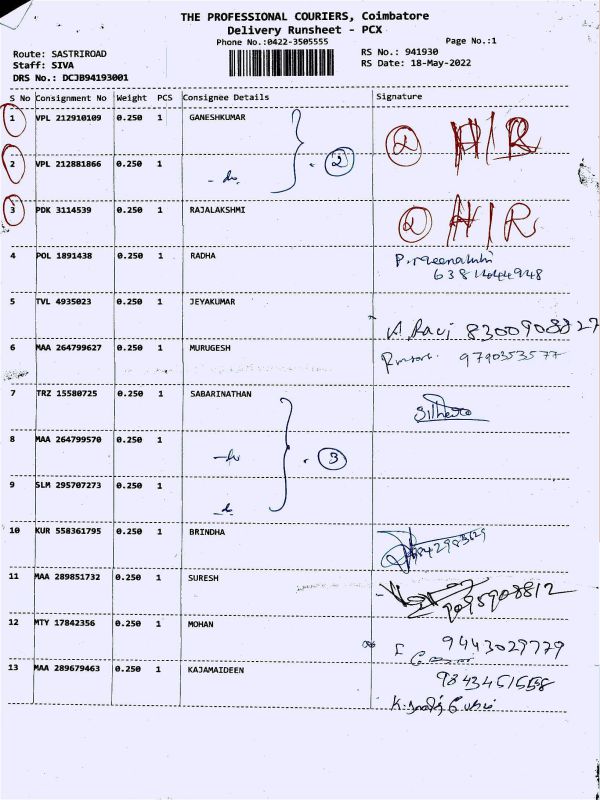 THE PROFESSIONAL COURIERS, Coimbatore
Delivery Runsheet - PCX
Phone No.:0422-3505555
Page No.:1
Route: SASTRIROAD
RS No.: 941930
Staff: SIVA
RS Date: 18-May-2022
DRS No.: DCJB94193001
S No Consignment No Weight PCS Consignee Details Signature
1 VPL 212910109 0.250 1 GANESHKUMAR
2 H/R
2 VPL 212881866 0.250 1
3 PDK 3114539 0.250 1 RAJALAKSHMI
H/R
4 POL 1891438 0.250 1 RADHA
5 TVL 4935023 0.250 1 JEYAKUMAR
Ravi 8300908827
6 MAA 264799627 0.250 1 MURUGESH
9790353577
7 TRZ 15580725 0.250 1 SABARINATHAN
8 MAA 264799570 0.250 1
3
9 SLM 295707273 0.250 1
10 KUR 558361795 0.250 1 BRINDHA
11 MAA 289851732 0.250 1 SURESH
12 MTY 17842356 0.250 1 MOHAN
9443029779
13 MAA 289679463 0.250 1 KAJAMAIDEEN